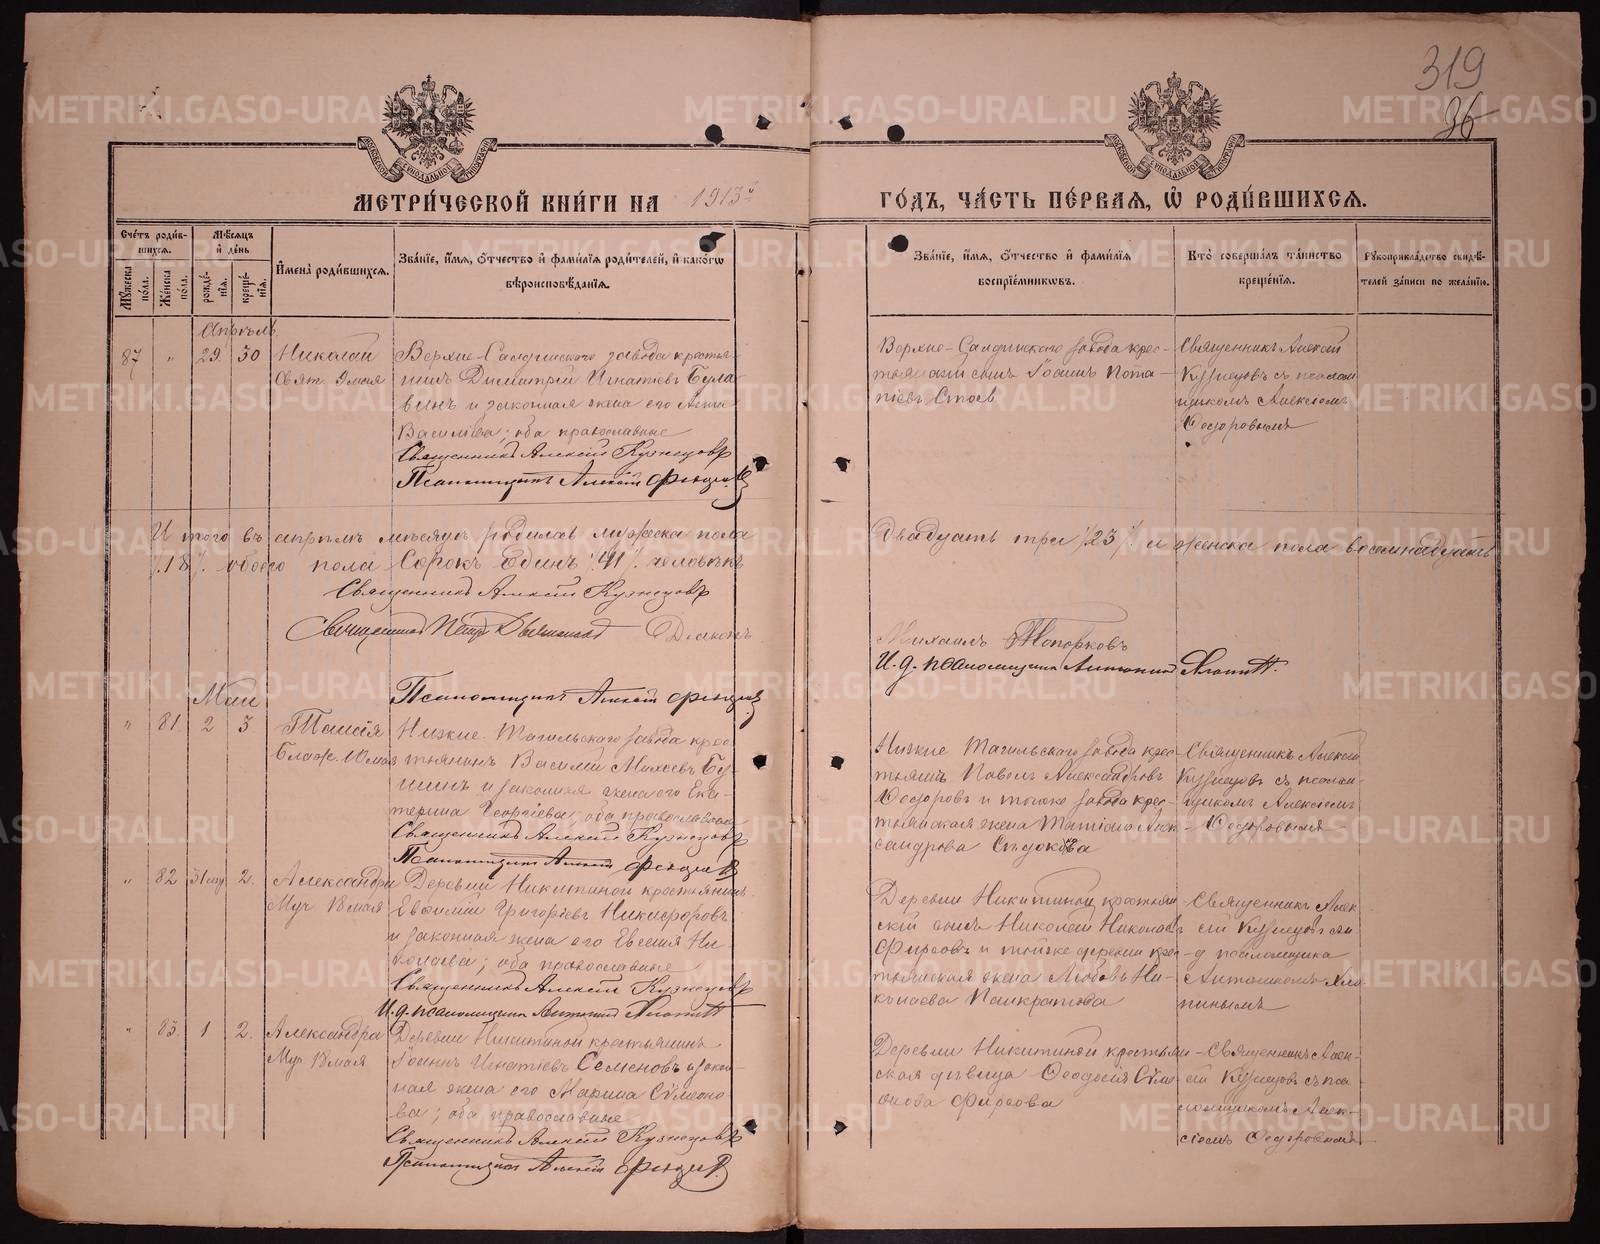 319
36
МЕТРИ́ЧЕСКОЙ КНИ́ГИ НА 1913й ГО́ДЪ, ЧА́СТЬ ПЕ́РВАЯ, Ѡ РОДИ́ВШИХСЯ.
Сче́тъ роди́в-
шихся.
Му́жеска
по́ла.
Же́нска
по́ла.
Мѣ́сяцъ
и де́нь
рожде́-
нія.
креще́-
нія.
Имена̀ роди́вшихся.
Зва́ніе, и́мя, о́тчество и фами́лія роди́телей, и како́гѡ
вѣроисповѣ́данія.
Зва́ніе, и́мя, о́тчество и фами́лія
воспріе́мникѡвъ.
Кто̀ соверша́лъ та́инство
креще́нія.
Рукоприкла́дство свидѣ́-
телей за́писи по жела́нію.
Апрѣль
87 " 29. 30
Николай
Свят. 9 мая
Верхне-Салдинскаго завода кресть-
янинъ Димитрій Игнатіевъ Була-
винъ и законная жена его Анна
Васильева; оба православные
Священникъ Алексій Кузнецовъ
Псаломщикъ Алексій
Верхне-Салдинскаго завода крес-
тьянскій сынъ Іоаннъ Пота-
піевъ
Священникъ Алексій
Кузнецовъ съ псалом-
щикомъ Алексіемъ
Ѳедоровымъ
И того въ апрѣлѣ мѣсяцѣ родилось мужеска пола
Двадцать три /23/ и женска пола восемнадцать
/18/. обоего пола Сорокъ Единъ /41/. человѣкъ
Священникъ Алексій Кузнецовъ
Священникъ Петръ Діаконъ
Михаилъ Топорковъ
И. д. псаломщика Антоній
Псаломщикъ Алексій
Май
" 81 2 3
Таисія
Блаж. 10 мая
Нижне-Тагильскаго завода крес-
тьянинъ Василій Михеевъ
и законная жена его Ека-
терина Георгіева; оба православные
Священникъ Алексій Кузнецовъ
Псаломщикъ Алексій
Нижне Тагильскаго завода крес-
тьянинъ Павелъ Александровъ
Ѳедоровъ и тогоже завода крес-
тьянская жена Татіана Алек-
сандрова
Священникъ Алексій
Кузнецовъ съ псалом-
щикомъ Алексіемъ
Ѳедоровымъ
" 82 31 апр 2.
Александра
Муч 18 мая
Деревни Никитиной крестьянинъ
Евѳимій Григоріевъ Никифоровъ
и законная жена его Евгенія Ни-
колаева; оба православные
Священникъ Алексій Кузнецовъ
И. д. псаломщика Антоній
Деревни Никитиной крестьян-
скій сынъ Николай Николаевъ
Фирсовъ и тойже деревни крес-
тьянская жена Любовь Ни-
колаева Панкратова
Священникъ Алек-
сій Кузнецовъ съ и
д псаломщика
Антоніемъ Хла-
пинымъ
" 83. 1 2.
Александра
Муч 18 мая
Деревни Никитиной крестьянинъ
Іоаннъ Игнатіевъ Семеновъ и закон-
ная жена его Марина Симеоно-
ва; оба православные
Священникъ Алексій Кузнецовъ
Псаломщикъ Алексій
Деревни Никитиной крестьян-
ская дѣвица Ѳеодосія Симе-
онова Фирсова
Священникъ Алек-
сій Кузнецовъ съ пса-
ломщикомъ Алек-
сіемъ Ѳедоровымъ